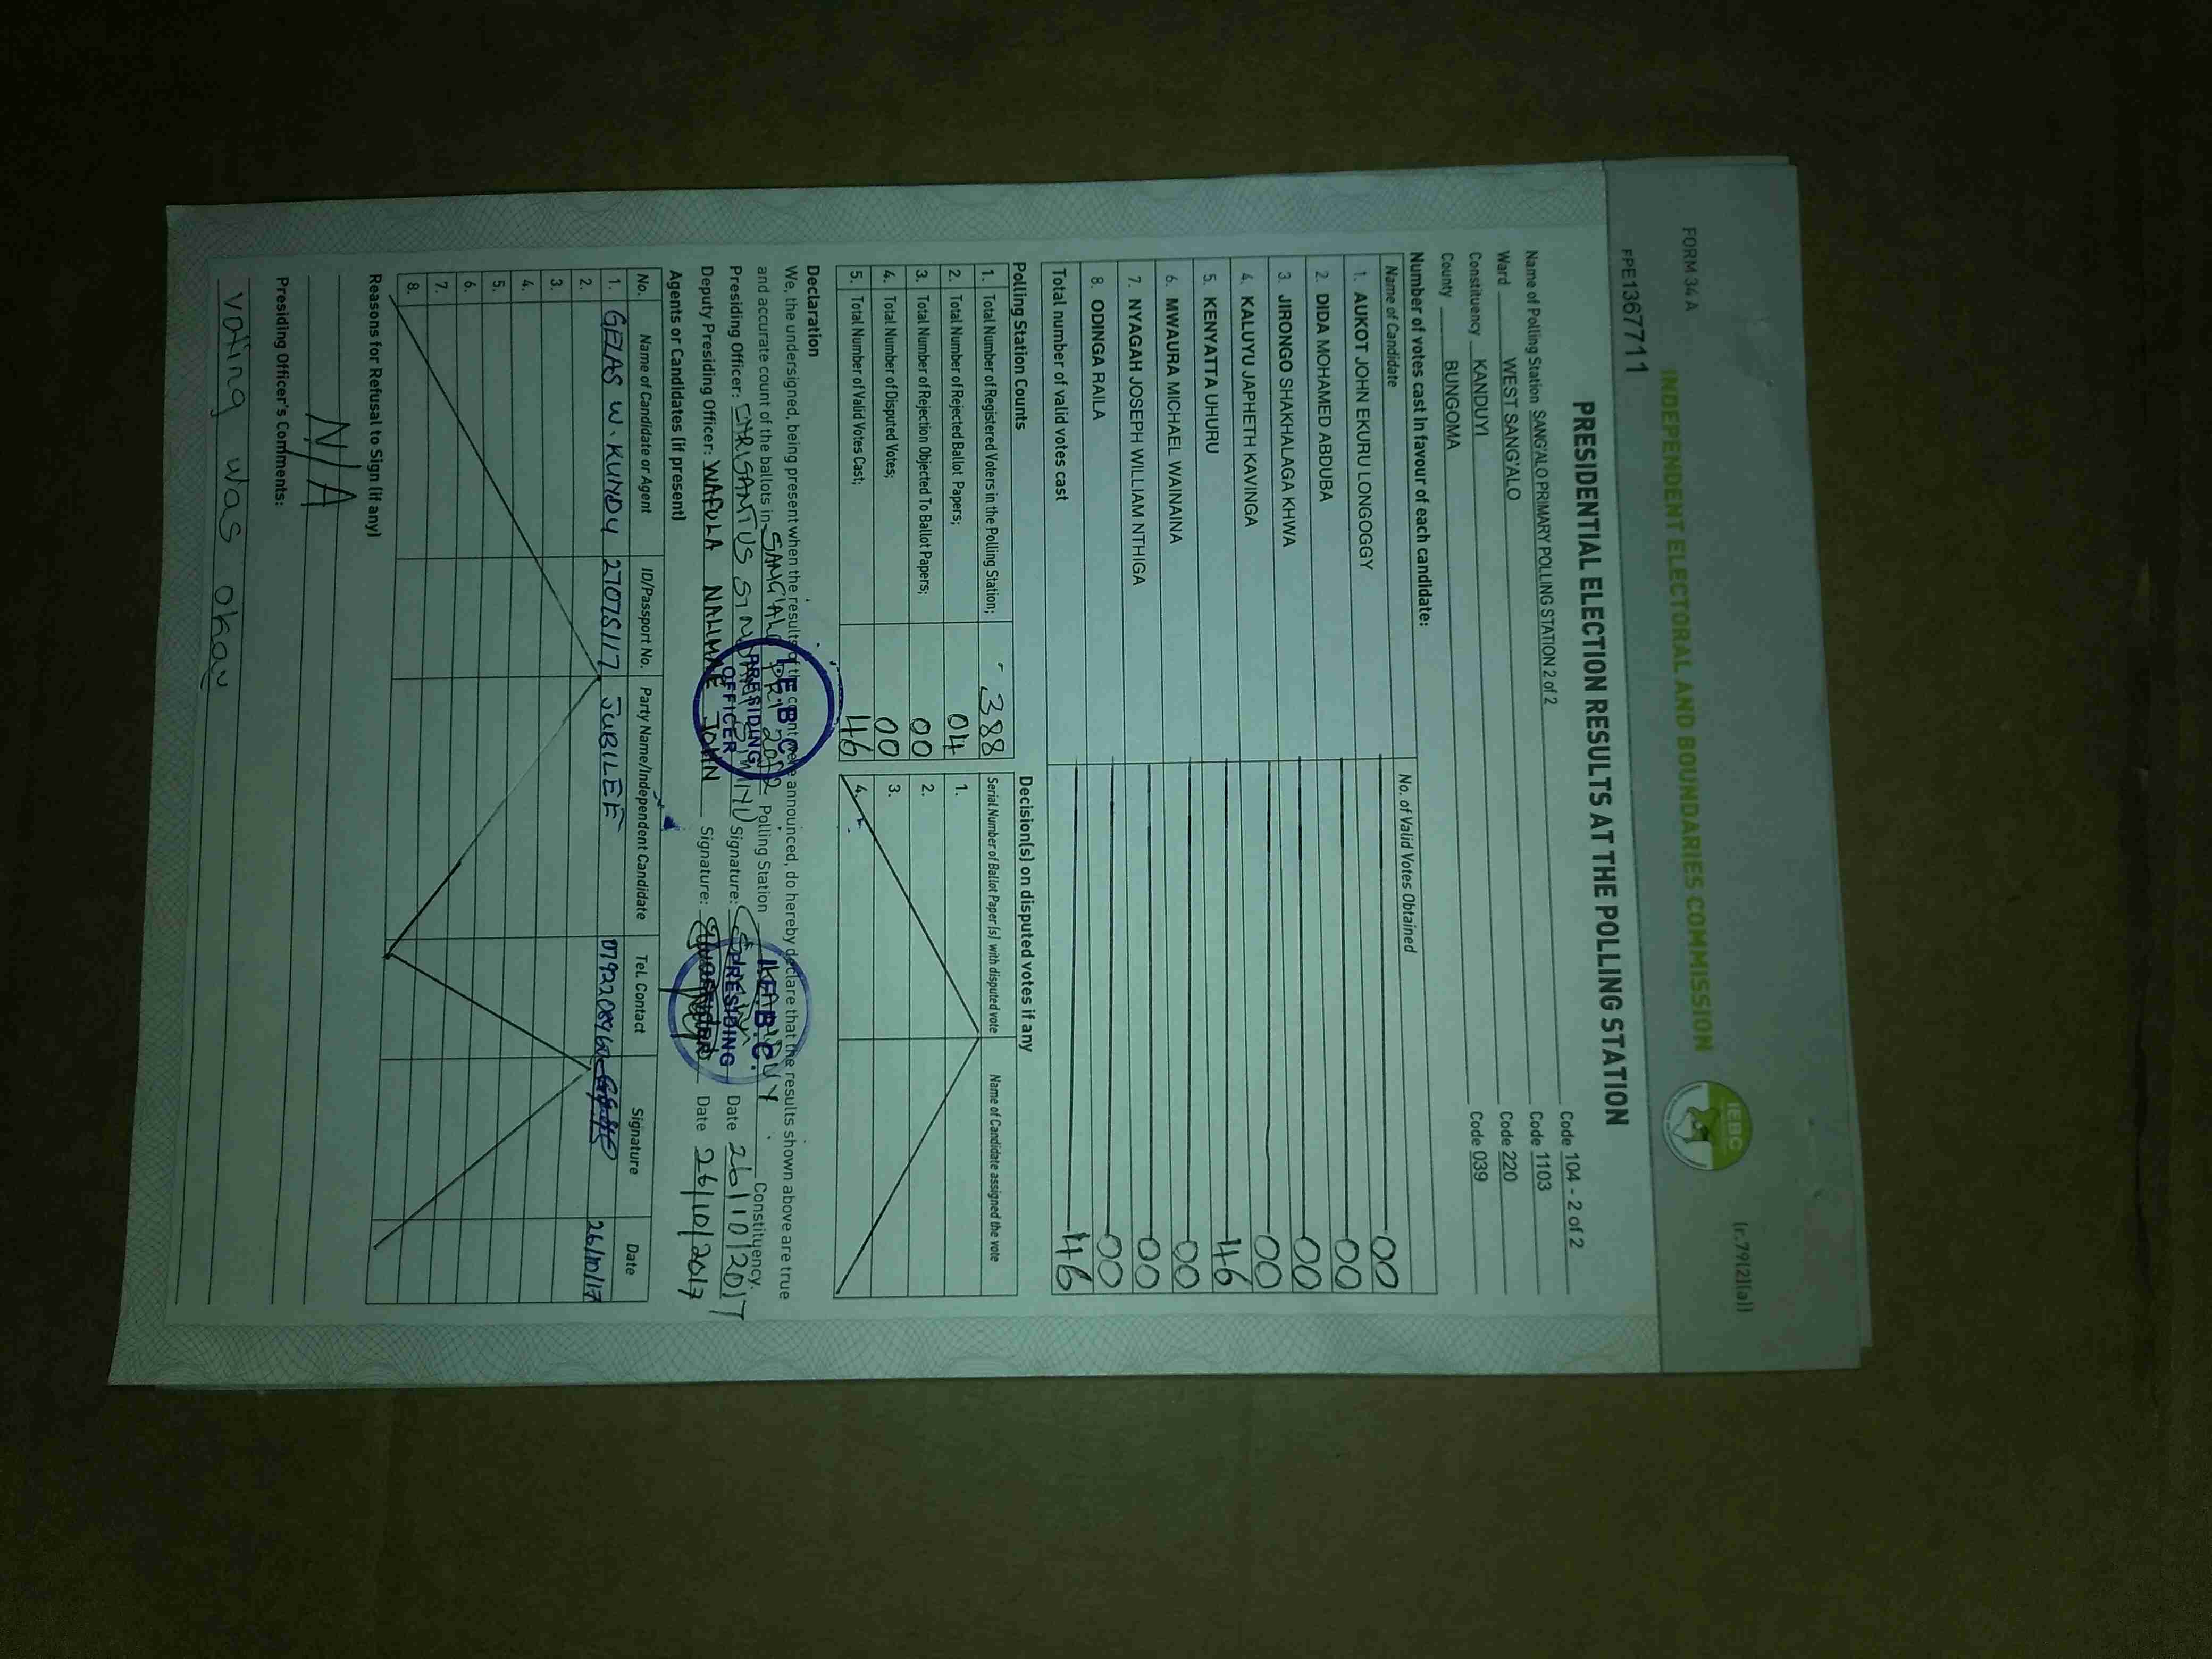 FORM 34 A
(r.79(2)(a))
INDEPENDENT ELECTORAL AND BOUNDARIES COMMISSION
IEBC
FPE1367711
PRESIDENTIAL ELECTION RESULTS AT THE POLLING STATION
Name of Polling Station SANG'ALO PRIMARY POLLING STATION 2 of 2 Code 104 - 2 of 2
Ward WEST SANG'ALO Code 1103
Constituency KANDUYI Code 220
County BUNGOMA Code 039
Number of votes cast in favour of each candidate:
Name of Candidate No. of Valid Votes Obtained
1. AUKOT JOHN EKURU LONGOGGY 00
2. DIDA MOHAMED ABDUBA 00
3. JIRONGO SHAKHALAGA KHWA 00
4. KALUYU JAPHETH KAVINGA 00
5. KENYATTA UHURU 46
6. MWAURA MICHAEL WAINAINA 00
7. NYAGAH JOSEPH WILLIAM NTHIGA 00
8. ODINGA RAILA 00
Total number of valid votes cast 46
Polling Station Counts
1. Total Number of Registered Voters in the Polling Station; 388
2. Total Number of Rejected Ballot Papers; 04
3. Total Number of Rejection Objected To Ballot Papers; 00
4. Total Number of Disputed Votes; 00
5. Total Number of Valid Votes Cast; 46
Decision(s) on disputed votes if any
Serial Number of Ballot Paper (s) with disputed vote Name of Candidate assigned the vote
1.
2.
3.
4.
Declaration
We, the undersigned, being present when the results of the count were announced, do hereby declare that the results shown above are true
and accurate count of the ballots in SANG'ALO PRI 2 of 2 Polling Station KANDUYI Constituency.
Presiding Officer: CHRISANTUS Signature: Date 26/10/2017
Deputy Presiding Officer: WAFULA NALIMAE JOHN Signature: Date 26/10/2017
I.E.B.C.
PRESIDING
OFFICER
I.E.B.C.
PRESIDING
Agents or Candidates (if present)
No. Name of Candidate or Agent ID/Passport No. Party Name/Independent Candidate Tel. Contact Signature Date
1. GELAS W. KUNDU 27075117 JUBILEE 26/10/17
2.
3.
4.
5.
6.
7.
8.
Reasons for Refusal to Sign (if any)
N/A
Presiding Officer's Comments:
Voting was okay